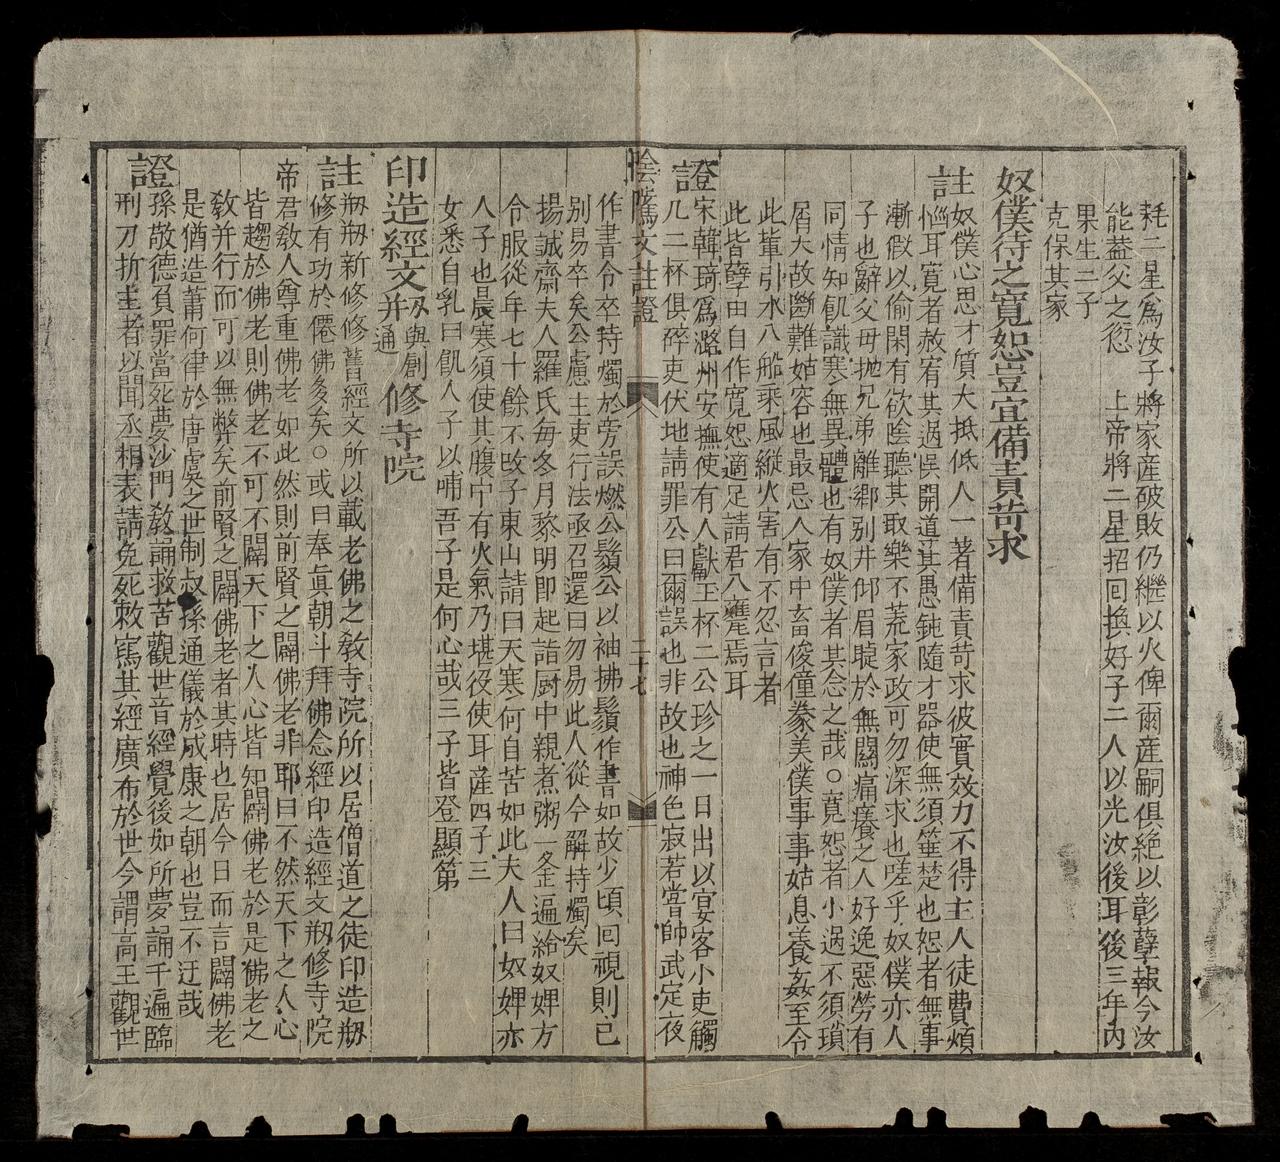 耗二星爲汝子將家産破敗仍繼以火俾爾産嗣俱絶以彰孽報今汝
能葢父之愆　上帝將二星招回換好子二人以光汝後耳後三年內
果生二子
克保其家
奴僕待之寬恕豈宜備責苛求
註奴僕心思才質大抵低人一著備責苛求彼實效力不得主人徒費煩
惱耳寬者赦宥其過悞開道其愚鈍隨才器使無須箠楚也恕者無事
漸假以偷閑有欲陰聽其取樂不荒家政可勿深求也嗟乎奴僕亦人
子也辭父母抛兄弟離鄉別井仰眉睫於無關痛癢之人好逸惡勞有
同情知飢識寒無異體也有奴僕者其念之哉○寬恕者小過不須瑣
屑大故斷難姑容也最忌人家中畜俊僮豢美僕事事姑息養姦至令
此輩引水入船乘風縱火害有不忍言者
此皆孽由自作寬恕適足請君入甕焉耳
證宋韓琦爲潞州安撫使有人獻玉杯二公珍之一日出以宴客小吏觸
几二杯俱碎吏伏地請罪公曰爾誤也非故也神色寂若嘗帥武定夜
陰隲文註證　二十七
作書令卒持燭於旁誤燃公鬚公以袖拂鬚作書如故少頃回視則已
別易卒矣公慮主吏行法亟召還曰勿易此人從今解持燭矣
揚誠齋夫人羅氏每冬月黎明即起詣厨中親煮粥一釜遍給奴婢方
令服從年七十餘不改子東山請曰天寒何自苦如此夫人曰奴婢亦
人子也晨寒須使其腹中有火氣乃堪役使耳産四子三
女悉自乳曰飢人子以哺吾子是何心哉三子皆登顯第
印造經文剏與創并通修寺院
註剏剏新修修舊經文所以載老佛之敎寺院所以居僧道之徒印造剏
修有功於僊佛多矣○或曰奉眞朝斗拜佛念經印造經文剏修寺院
帝君敎人尊重佛老如此然則前賢之闢佛老非耶曰不然天下之人心
皆趨於佛老則佛老不可不闢天下之人心皆知闢佛老於是佛老之
敎并行而可以無弊矣前賢之闢佛老者其時也居今日而言闢佛老
是猶造蕭何律於唐虞之世制叔孫通儀於成康之朝也豈不迂哉
證孫敬德負罪當死夢沙門敎誦救苦觀世音經覺後如所夢誦千遍臨
刑刀折主者以聞丞相表請免死敕寫其經廣布於世今謂高王觀世